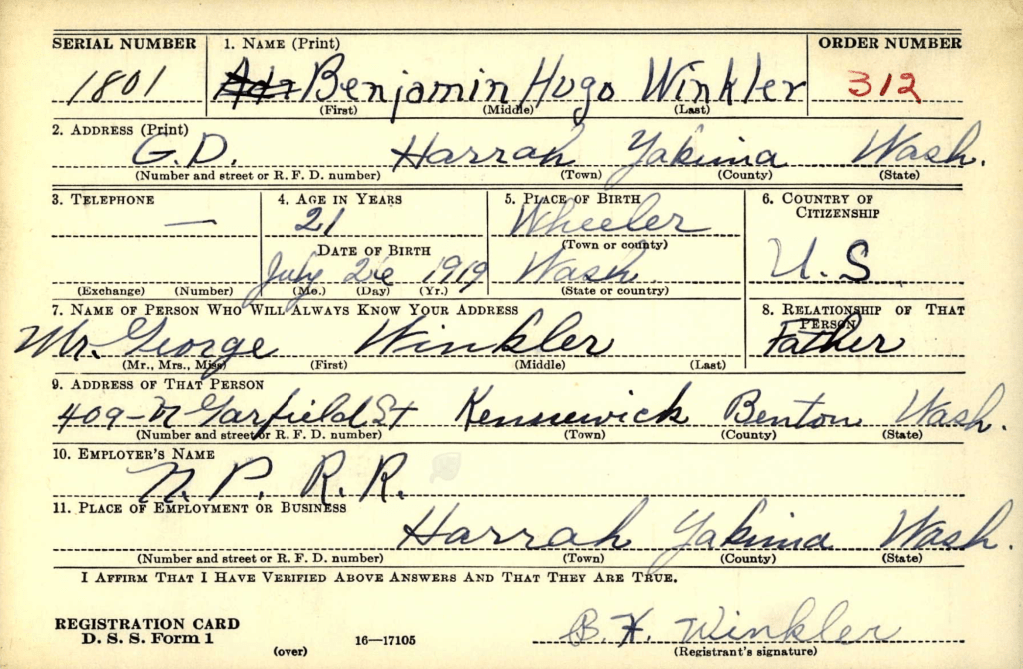 SERIAL NUMBER 1. NAME (Print) ORDER NUMBER
1801 Benjamin Hugo Winkler 312
(First) (Middle) (Last)
2. ADDRESS (Print)
G.D. Harrah Yakima Wash.
(Number and street or R. F. D. number) (Town) (County) (State)
3. TELEPHONE 4. AGE IN YEARS 5. PLACE OF BIRTH 6. COUNTRY OF CITIZENSHIP
— 21 Wheeler
DATE OF BIRTH (Town or county)
July 1919 Wash. U.S
(Exchange) (Number) (Mo.) (Day) (Yr.) (State or country)
7. NAME OF PERSON WHO WILL ALWAYS KNOW YOUR ADDRESS 8. RELATIONSHIP OF THAT PERSON
Mr. George Winkler Father
(Mr., Mrs., Miss) (First) (Middle) (Last)
9. ADDRESS OF THAT PERSON
409-N Garfield St Kennewick Benton Wash.
(Number and street or R. F. D. number) (Town) (County) (State)
10. EMPLOYER'S NAME
N. P. R. R.
11. PLACE OF EMPLOYMENT OR BUSINESS
Harrah Yakima Wash.
(Number and street or R. F. D. number) (Town) (County) (State)
I AFFIRM THAT I HAVE VERIFIED ABOVE ANSWERS AND THAT THEY ARE TRUE.
REGISTRATION CARD B. H. Winkler
D. S. S. Form 1 16—17105
(over) (Registrant's signature)